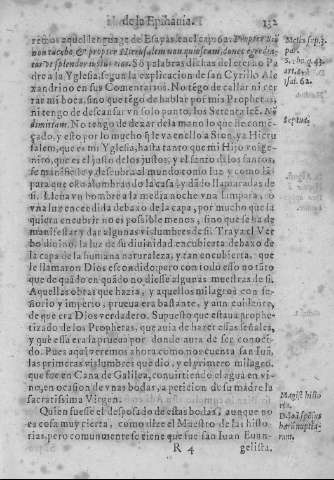 de la Epihania. 132
remos aquel lenguage de Esayas en el cap. 62. Propter Sion
non tacebo & propter Hierusalem non quiescam, donec egrediatur
vt splendor iustus eius. Sõ palabras dichas del eterno Padre
a la Yglesia, segun la explicacion de san Cyrillo Alexandrino
en sus Comentarios. No tẽgo de callar ni cerrar
mi boca, sino que tẽgo de hablar por mis Prophetas,
ni tengo de descansar vn solo punto, los Setenta leẽ. Nõ
dimittam. No tengo de dexar de la mano lo que he comẽçado,
y esto por lo mucho q̃ le va en ello a Sion, y a Hierusalem,
que es mi Yglesia, hasta tanto que mi Hijo vnigenito,
que es el justo de los justos, y el santo de los santos,
se manifieste y descubra al mundo como luz y como lãpara
que està alombrando la casa, y dãdo llamaradas de
si. Lleua vn hombre a la media noche vna lampara, o
vna luz encendida debaxo de la capa, por mucho que la
quiera encubrir no es possible menos, sino que se ha de
manifestar y dar algunas vislumbres de si. Traya el Verbo
diuino, la luz de su diuinidad encubierta debaxo de
la capa de su humana naturaleza, y tan encubierta, que
le llamaron Dios escondido; pero con todo esso no tãto
que de quãdo en quãdo no diesse algunas muestras de si.
Aquellas obras que hazia, y aquellos milagros con señorio
y imperio, prueua era bastante, y aun euidente,
de que era Dios verdadero. Supuesto que estaua prophetizado
de los Prophetas, que auia de hazer essas señales,
y que essa era la prueua por donde auia de ser conocido.
Pues aqui veremos ahora como nos cuenta san Iuã,
las primeras vislumbres que dio, y el primero milagro,
que fue en Cana de Galilea, conuirtiendo el agua en vino,
en ocasion de vnas bodas, a peticion de su madre la
sacratissima Virgen.
Quien fuesse el desposado de estas bodas, aunque no
es cosa muy cierta, como dize el Maestro de las historias,
pero comunmente se tiene que fue san Iuan Euan-
R 4 gelista.
Isai. 62.
Septuag.
Magist. histo
ria.